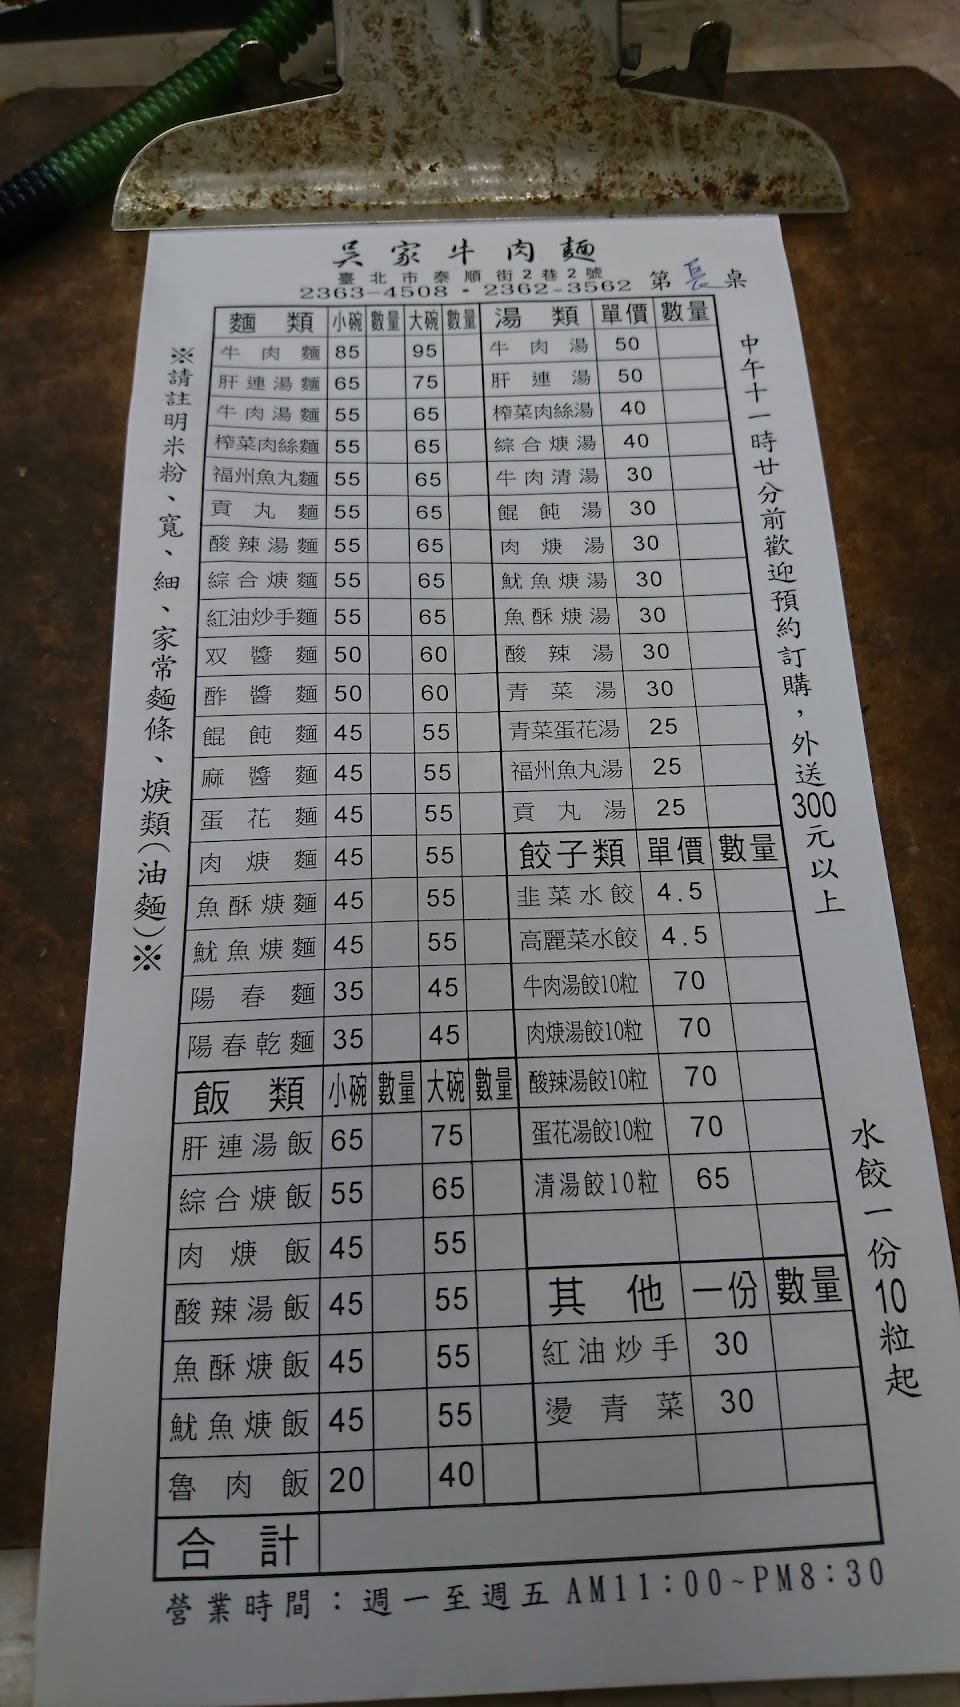 吳家牛肉麵
臺北市泰順街2巷2號
2363-4508・2362-3562 第長桌
麵類 小碗 數量 大碗 數量
牛肉麵 85 95
肝連湯麵 65 75
牛肉湯麵 55 65
榨菜肉絲麵 55 65
福州魚丸麵 55 65
貢丸麵 55 65
酸辣湯麵 55 65
綜合焿麵 55 65
紅油炒手麵 55 65
双醬麵 50 60
酢醬麵 50 60
餛飩麵 45 55
麻醬麵 45 55
蛋花麵 45 55
肉焿麵 45 55
魚酥焿麵 45 55
魷魚焿麵 45 55
陽春麵 35 45
陽春乾麵 35 45
飯類 小碗 數量 大碗 數量
肝連湯飯 65 75
綜合焿飯 55 65
肉焿飯 45 55
酸辣湯飯 45 55
魚酥焿飯 45 55
魷魚焿飯 45 55
魯肉飯 20 40
湯類 單價 數量
牛肉湯 50
肝連湯 50
榨菜肉絲湯 40
綜合焿湯 40
牛肉清湯 30
餛飩湯 30
肉焿湯 30
魷魚焿湯 30
魚酥焿湯 30
酸辣湯 30
青菜湯 30
青菜蛋花湯 25
福州魚丸湯 25
貢丸湯 25
餃子類 單價 數量
韭菜水餃 4.5
高麗菜水餃 4.5
牛肉湯餃10粒 70
肉焿湯餃10粒 70
酸辣湯餃10粒 70
蛋花湯餃10粒 70
清湯餃10粒 65
其他 一份 數量
紅油炒手 30
燙青菜 30
合計
※請註明米粉、寬、細、家常麵條、焿類(油麵)※
中午十一時廿分前歡迎預約訂購，外送300元以上
水餃一份10粒起
營業時間：週一至週五 AM11:00~PM8:30